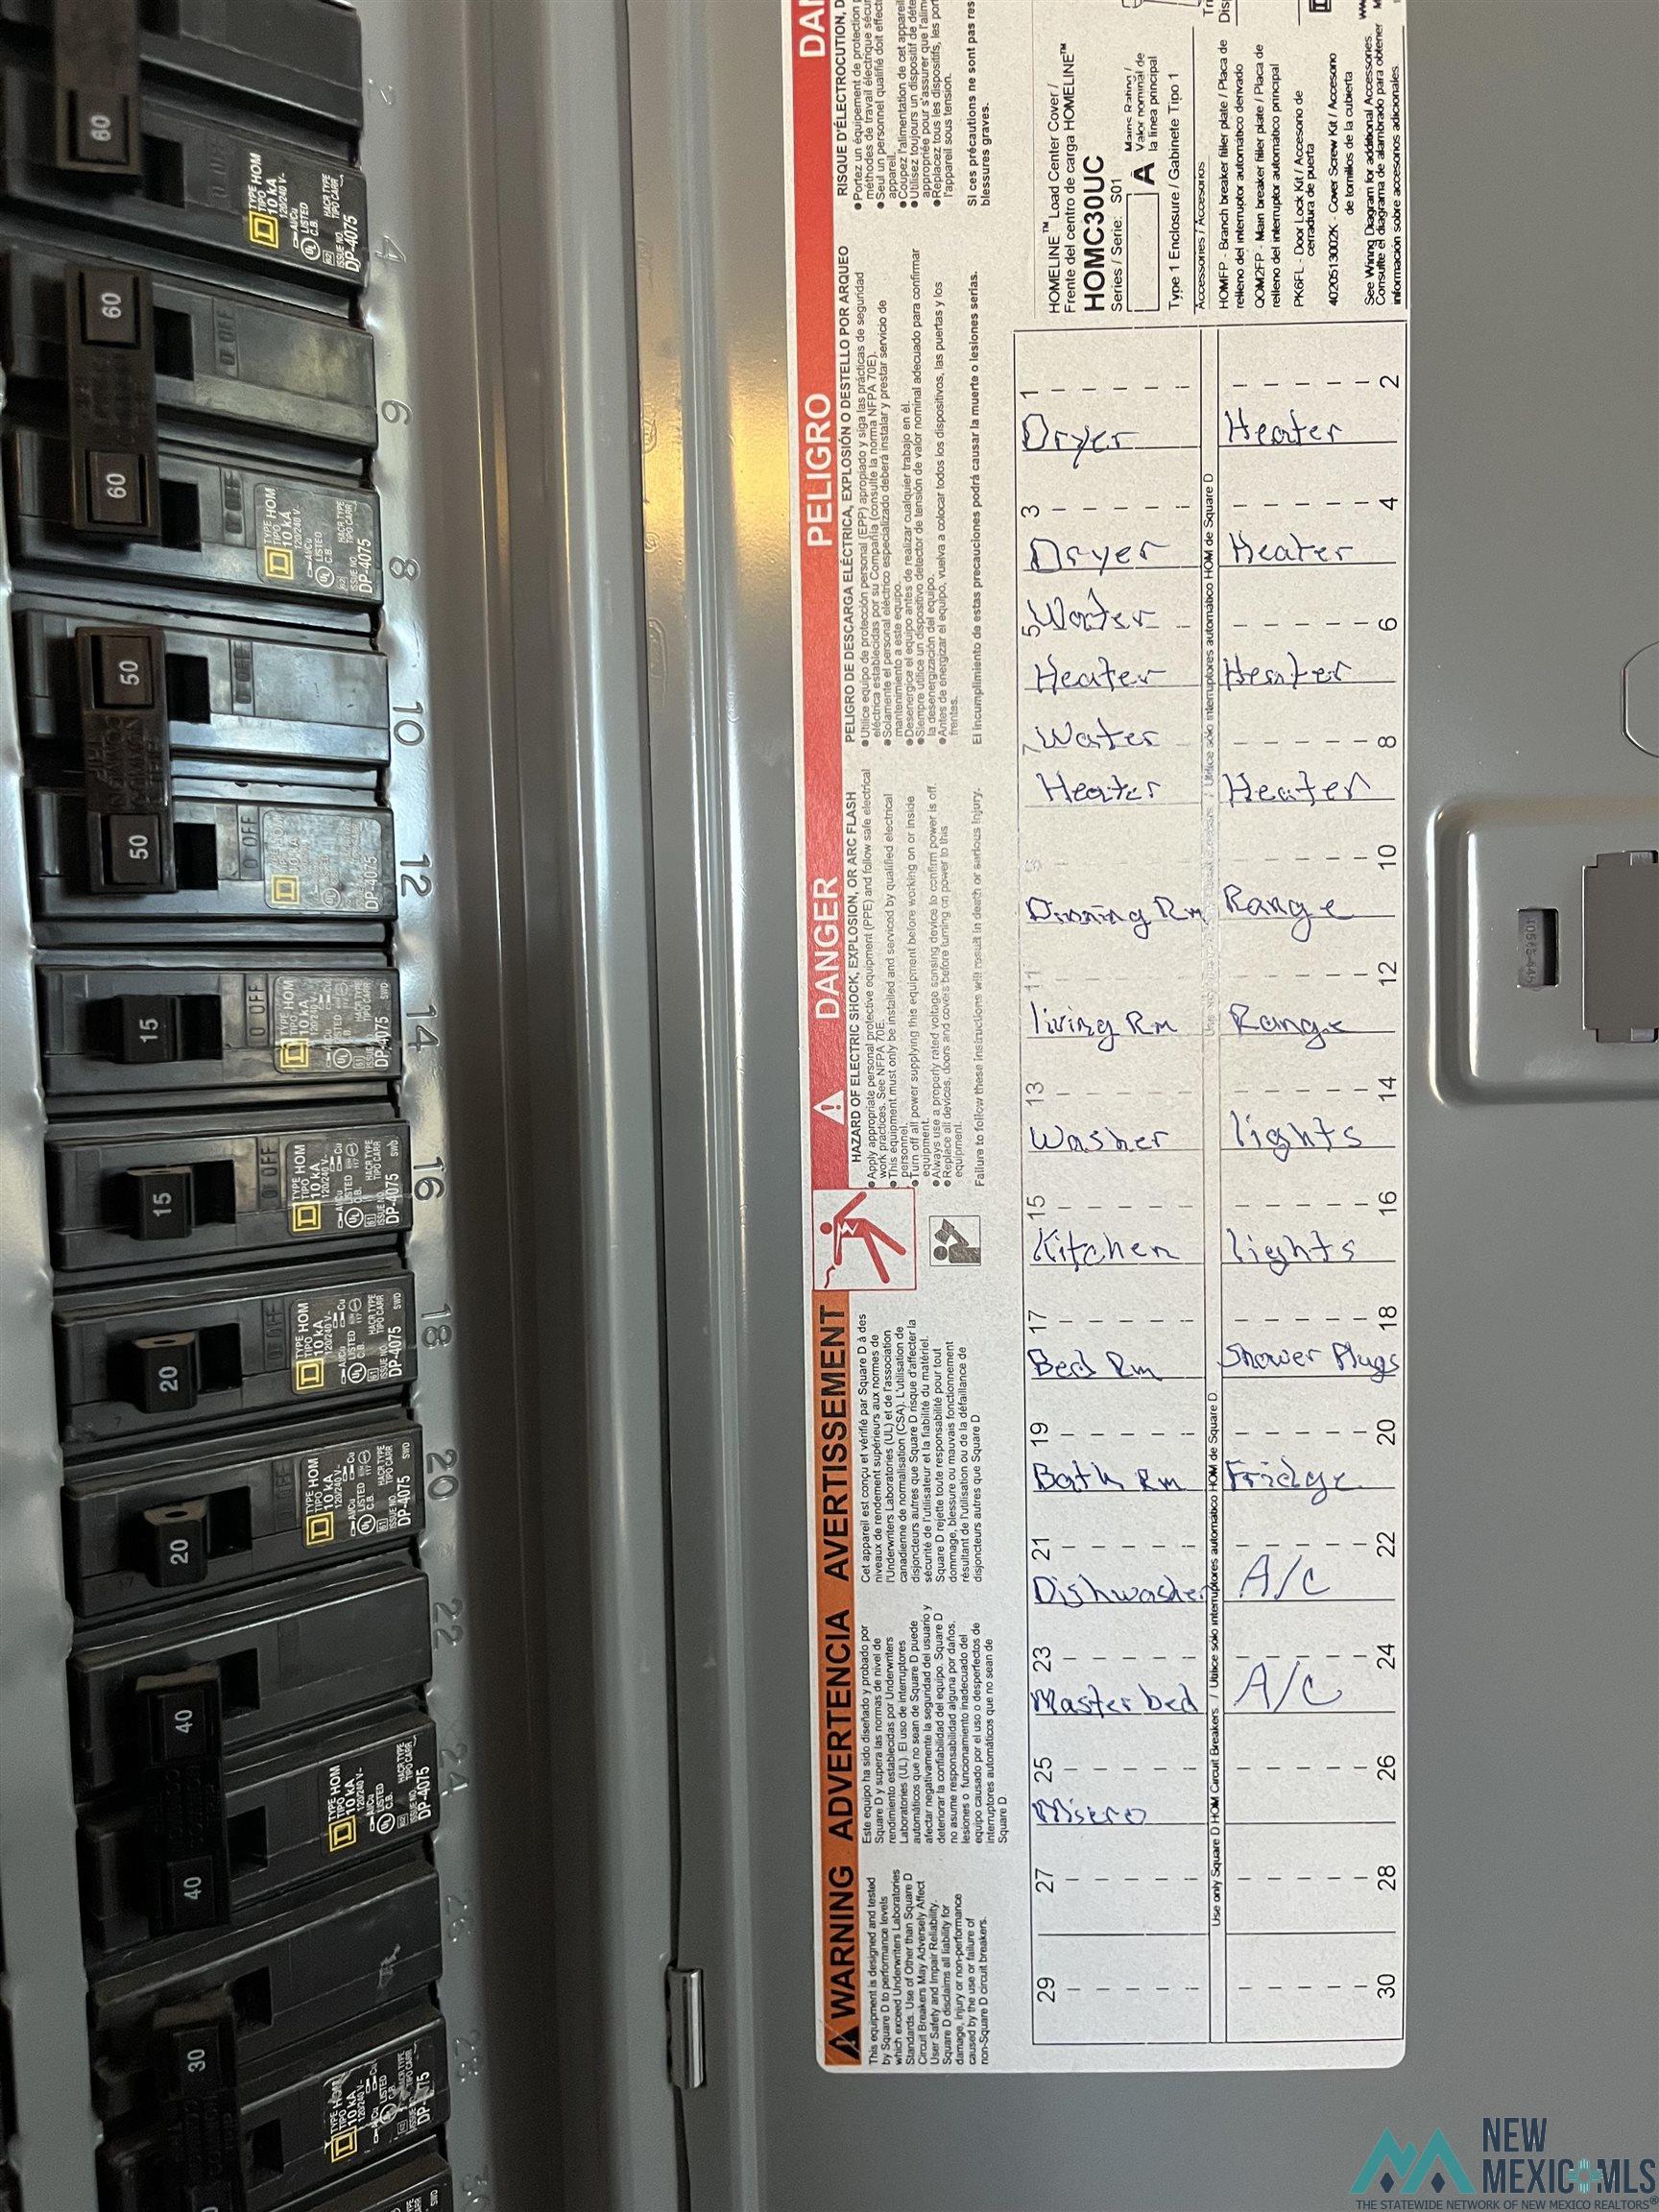 60
TYPE HOM
TIPO
10 kA
120/240 V~
Al/Cu
LISTED
C.B.
HACR TYPE
TIPO CARR
ISSUE NO.
DP-4075
2
4
60
O OFF
6
60
O OFF
TYPE HOM
TIPO
10 kA
120/240 V~
Al/Cu
LISTED
C.B.
HACR TYPE
TIPO CARR
ISSUE NO.
DP-4075
8
50
O OFF
10
50
O OFF
DP-4075
12
15
O OFF
TYPE HOM
TIPO
10 kA
120/240 V~
HACR TYPE
TIPO CARR
DP-4075
SWD
14
15
O OFF
TYPE HOM
TIPO
10 kA
120/240 V~
Al/Cu
LISTED
C.B.
HACR TYPE
TIPO CARR
ISSUE NO.
DP-4075
SWD
16
20
O OFF
TYPE HOM
TIPO
10 kA
120/240 V~
Al/Cu
LISTED
C.B.
HACR TYPE
TIPO CARR
ISSUE NO.
DP-4075
SWD
18
20
TYPE HOM
TIPO
10 kA
120/240 V~
Al/Cu
LISTED
C.B.
HACR TYPE
TIPO CARR
ISSUE NO.
DP-4075
SWD
20
22
40
TYPE HOM
TIPO
10 kA
120/240 V~
Al/Cu
LISTED
C.B.
HACR TYPE
TIPO CARR
ISSUE NO.
DP-4075
24
40
26
30
TYPE HOM
TIPO
10 kA
120/240 V~
LISTED
C.B.
28
30
SWD
WARNING ADVERTENCIA AVERTISSEMENT
This equipment is designed and tested
by Square D to performance levels
which exceed Underwriters Laboratories
Standards. Use of Other than Square D
Circuit Breakers May Adversely Affect
User Safety and Impair Reliability.
Square D disclaims all liability for
damage, injury or non-performance
caused by the use or failure of
non-Square D circuit breakers.
Este equipo ha sido diseñado y probado por
Square D y supera las normas de nivel de
rendimiento establecidas por Underwriters
Laboratories (UL). El uso de interruptores
automáticos que no sean de Square D puede
afectar negativamente la seguridad del usuario y
deteriorar la confiabilidad del equipo. Square D
no asume responsabilidad alguna por daños,
lesiones o funcionamiento inadecuado del
equipo causado por el uso o desperfectos de
interruptores automáticos que no sean de
Square D
Cet appareil est conçu et vérifié par Square D à des
niveaux de rendement supérieurs aux normes de
l'Underwriters Laboratories (UL) et de l'association
canadienne de normalisation (CSA). L'utilisation de
disjoncteurs autres que Square D risque d'affecter la
sécurité de l'utilisateur et la fiabilité du matériel.
Square D rejette toute responsabilité pour tout
dommage, blessure ou mauvais fonctionnement
résultant de l'utilisation ou de la défaillance de
disjoncteurs autres que Square D
DANGER
HAZARD OF ELECTRIC SHOCK, EXPLOSION, OR ARC FLASH
● Apply appropriate personal protective equipment (PPE) and follow safe electrical
work practices. See NFPA 70E.
● This equipment must only be installed and serviced by qualified electrical
personnel.
● Turn off all power supplying this equipment before working on or inside
equipment.
● Always use a properly rated voltage sensing device to confirm power is off.
● Replace all devices, doors and covers before turning on power to this
equipment.
Failure to follow these instructions will result in death or serious injury.
PELIGRO
PELIGRO DE DESCARGA ELÉCTRICA, EXPLOSIÓN O DESTELLO POR ARQUEO
● Utilice equipo de protección personal (EPP) apropiado y siga las prácticas de seguridad
eléctrica establecidas por su Compañía (consulte la norma NFPA 70E).
● Solamente el personal eléctrico especializado deberá instalar y prestar servicio de
mantenimiento a este equipo.
● Desenergice el equipo antes de realizar cualquier trabajo en él.
● Siempre utilice un dispositivo detector de tensión de valor nominal adecuado para confirmar
la desenergización del equipo.
● Antes de energizar el equipo, vuelva a colocar todos los dispositivos, las puertas y los
frentes.
El incumplimiento de estas precauciones podrá causar la muerte o lesiones serias.
DAN
RISQUE D'ÉLECTROCUTION, D
● Portez un équipement de protection
méthodes de travail électrique sécu
● Seul un personnel qualifié doit effect
appareil.
● Coupez l'alimentation de cet appareil
● Utilisez toujours un dispositif de déte
appropriée pour s'assurer que l'alim
● Replacez tous les dispositifs, les port
l'appareil sous tension.
Si ces précautions ne sont pas res
blessures graves.
HOMELINE™ Load Center Cover /
Frente del centro de carga HOMELINE™
HOMC30UC
Series / Serie: S01
A
Mains Rating /
Valor nominal de
la línea principal
Type 1 Enclosure / Gabinete Tipo 1
Accessories / Accesorios
HOMFP - Branch breaker filler plate / Placa de
relleno del interruptor automático derivado
QOM2FP - Main breaker filler plate / Placa de
relleno del interruptor automático principal
PK6FL - Door Lock Kit / Accesorio de
cerradura de puerta
4020513002K - Cover Screw Kit / Accesorio
de tornillos de la cubierta
See Wiring Diagram for additional Accessories.
Consulte el diagrama de alambrado para obtener
información sobre accesorios adicionales.
1 Dryer
3 Dryer
5 Water
Heater
7 Water
Heater
9 Dinning Rm
11 living Rm
13 Washer
15 Kitchen
17 Bed Rm
19 Bath Rm
21 Dishwasher
23 Master bed
25 Micro
27
29
Use only Square D HOM Circuit Breakers. / Utilice sólo interruptores automático HOM de Square D
/ Utilice sólo interruptores automático HOM de Square D
Heater 2
Heater 4
Heater 6
Heater 8
Range 10
Range 12
lights 14
lights 16
Shower Plugs 18
Fridge 20
A/C 22
A/C 24
26
28
30
NEW
MEXICO MLS
THE STATEWIDE NETWORK OF NEW MEXICO REALTORS®